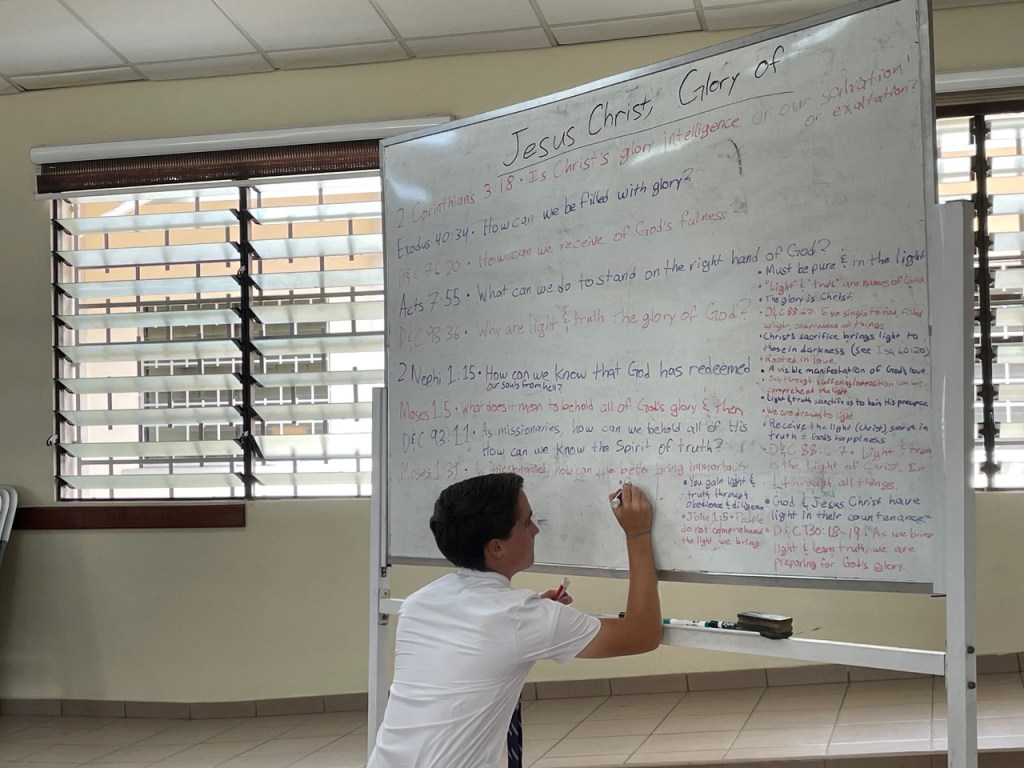 Jesus Christ, Glory of
2 Corinthians 3:18 • Is Christ's glory intelligence or our salvation
or exaltation?
Exodus 40:34 • How can we be filled with glory?
D&C 76:20 • How can we receive of God's fulness
Acts 7:55 • What can we do to stand on the right hand of God?
D&C 93:36 • Why are light & truth the glory of God?
2 Nephi 1:15 • How can we know that God has redeemed
our souls from hell?
Moses 1:5 • What does it mean to behold all of God's glory & then
D&C 93:11 • As missionaries, how can we behold all of His
How can we know the Spirit of truth?
Moses 1:39 • As missionaries, how can we better bring
• Must be pure & in the light
• "Light" & "truth" are names of Christ
• The glory is Christ
• D&C 88:67
all things
• Christ's sacrifice brings light to
those in darkness (see Isa 60:1-20)
• Rooted in love.
• A visible manifestation of God's love
comprehend the light
• Light & truth sanctify us to be in His presence
• We are drawn to light
• Receive the light (Christ) serve in
truth = God's happiness
• D&C 88:6-7 • Light & truth
is the Light of Christ. In
& through all things.
• God & Jesus Christ have
light in their countenance
D&C 130:18-19 • As we bring
light & learn truth, we are
preparing for God's glory.
• You gain light &
truth through
obedience & diligence
• John 1:5 • People
do not comprehend
the light we bring.